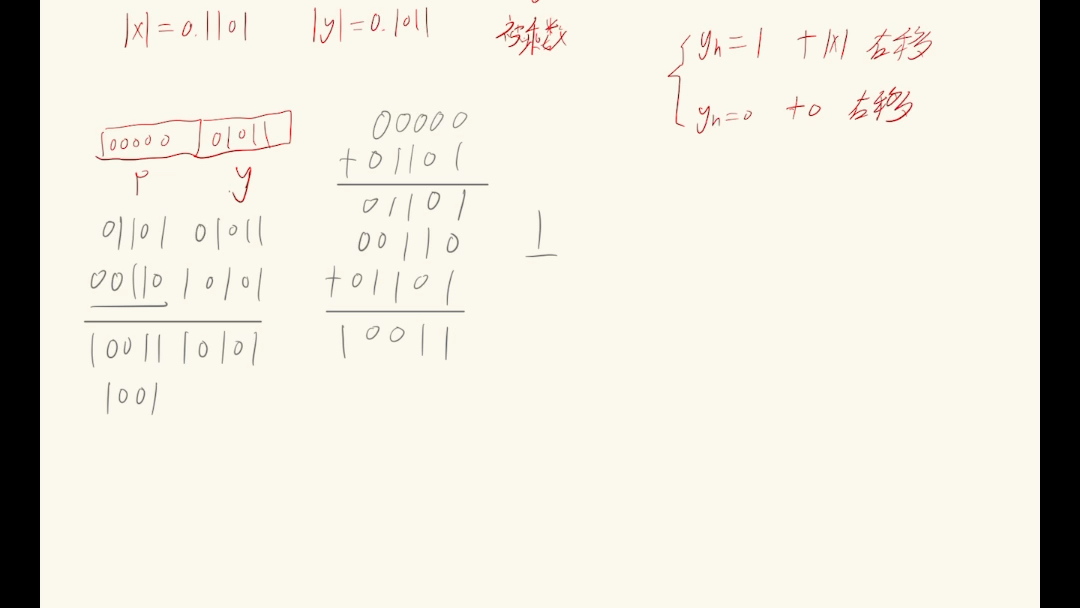 |x| = 0.1101 |y| = 0.1011 被乘数
yn = 1 +|x| 右移
yn = 0 +0 右移
00000 01011
P y
01101 01011
00110 10101
10011 10101
1001
00000
+01101
01101
00110
+01101
10011
1